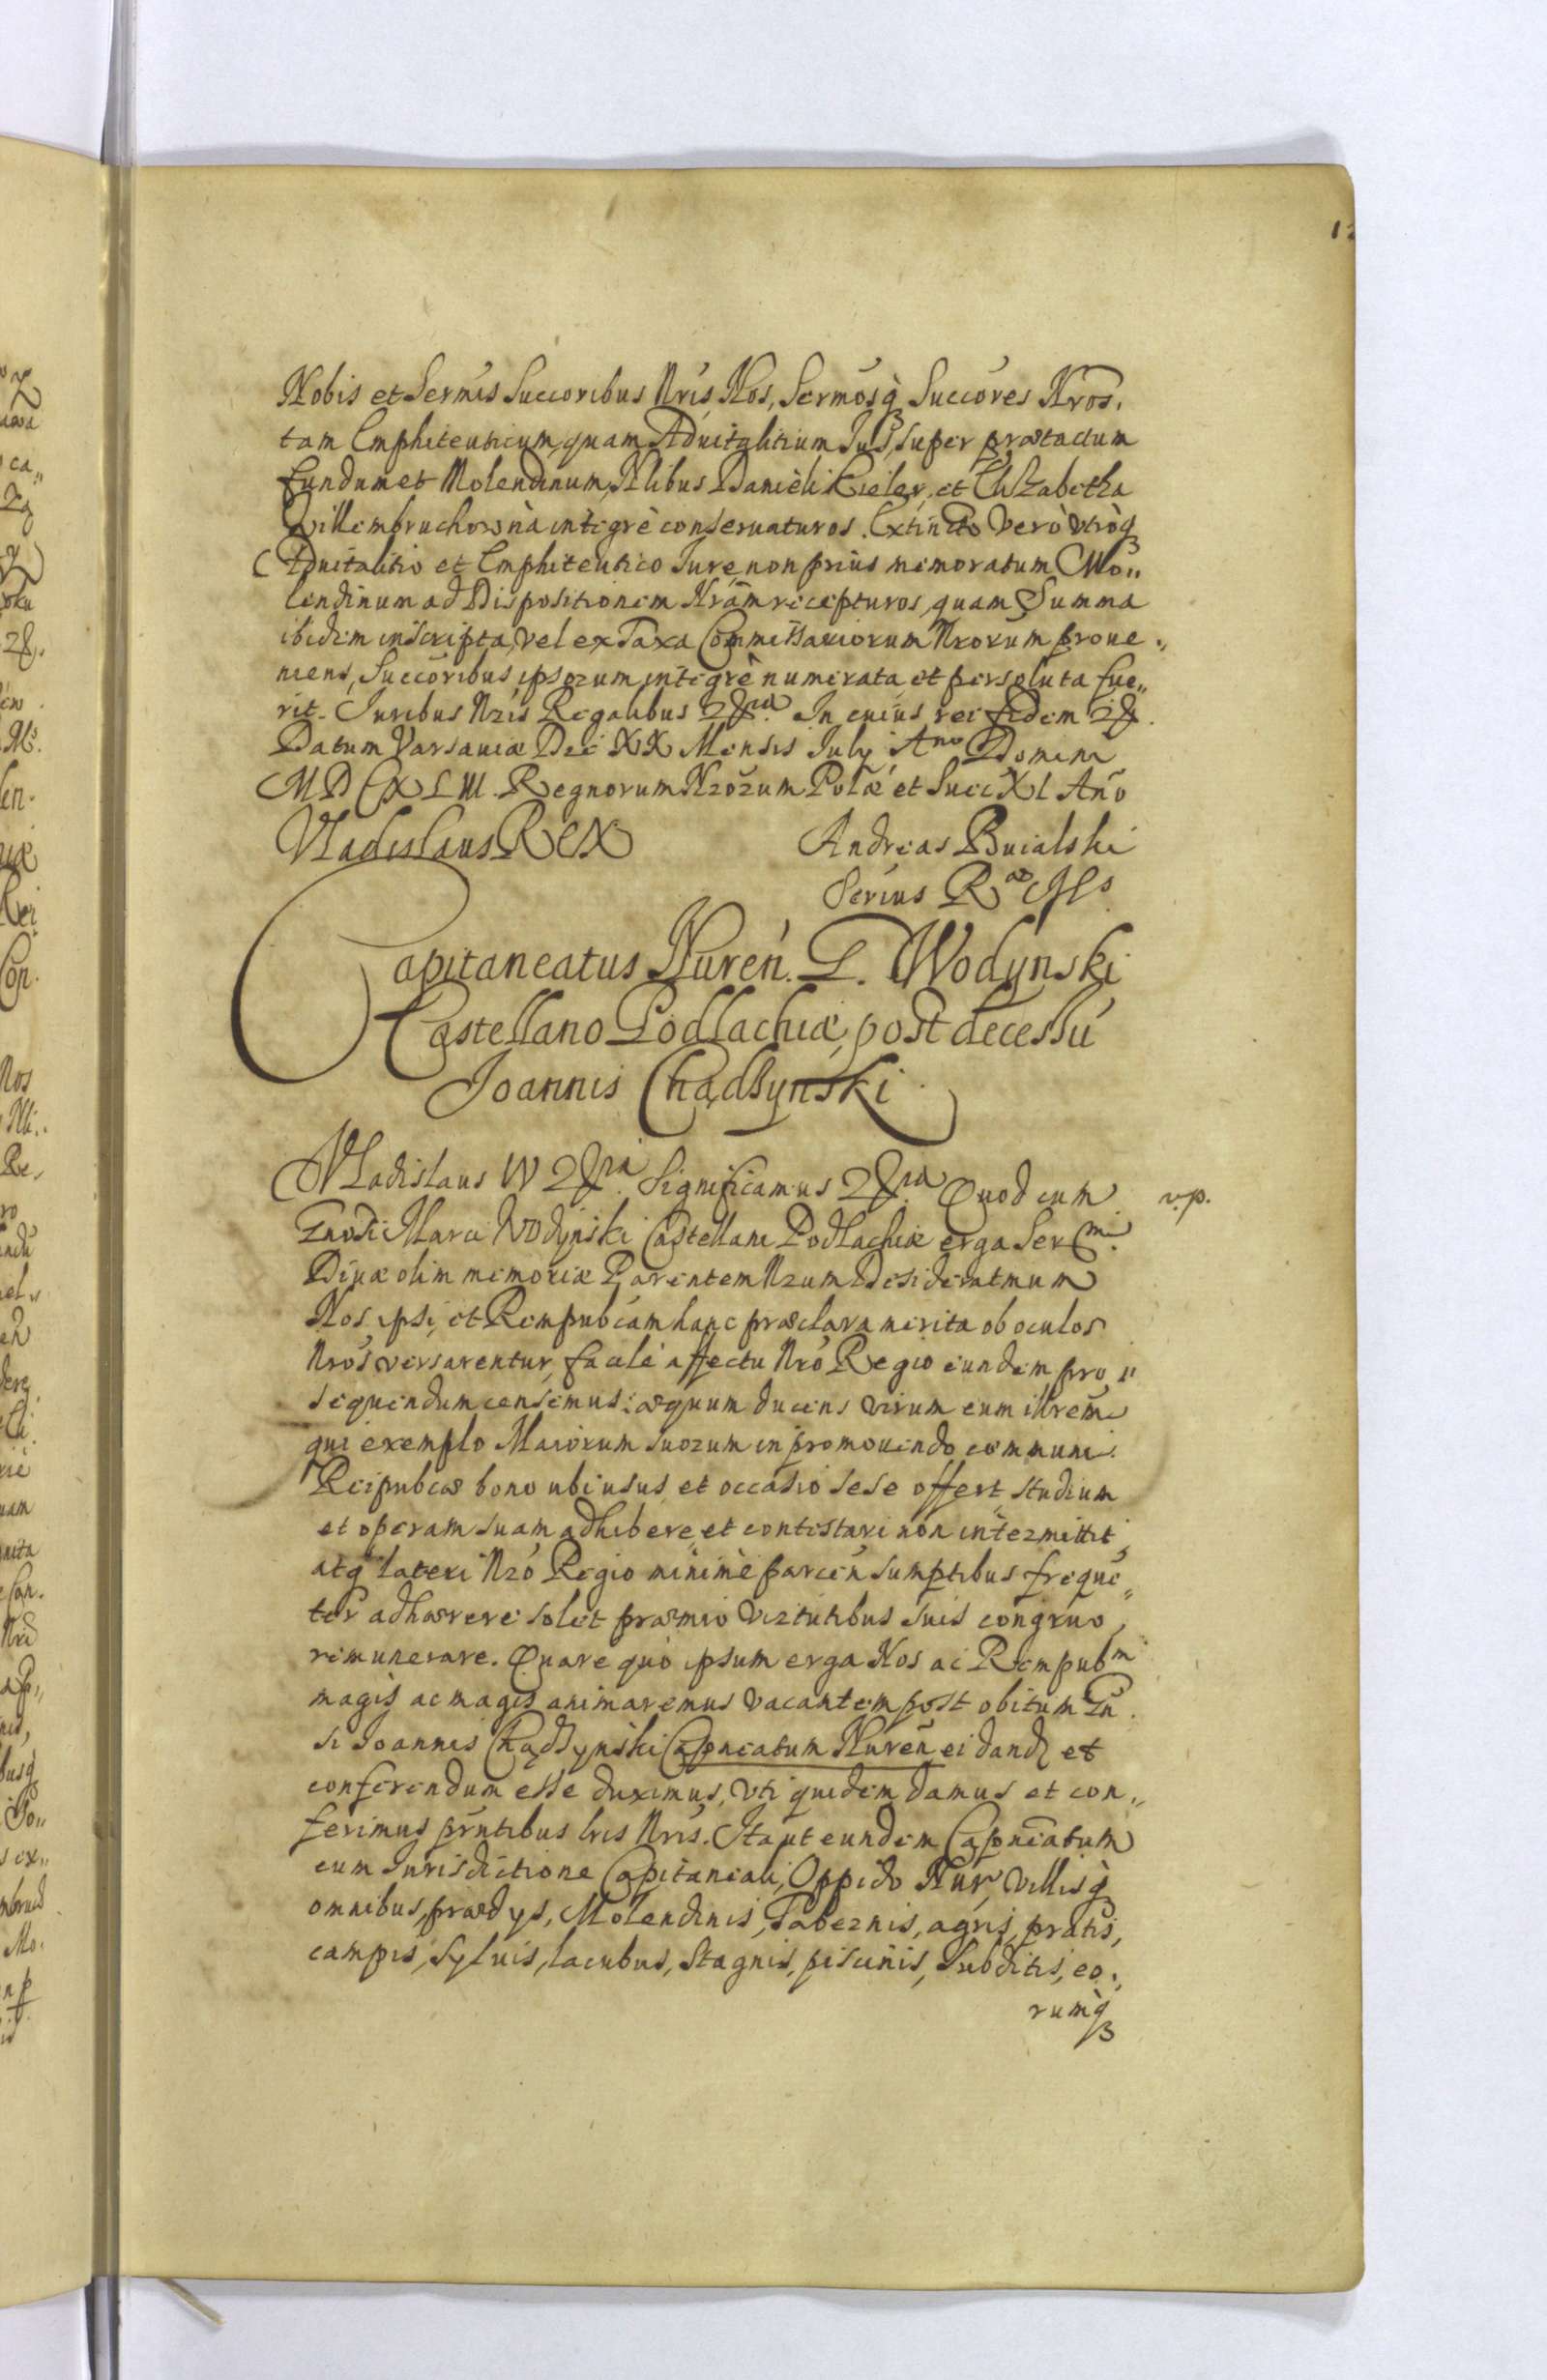 12
Nobis et Sermis Succoribus Nris, Nos, Sermosq3 Succores Nros,
tam Emphiteuticum, quam Aduitalitium Jus, super prætactum
fundum et Molendinum, Nlibus Danieli Kieler, et Elizabetha
Willembruchowna integrè conseruaturos. Extincto verò vtroq3
Aduitalitio et Emphiteutico Jure, non prius memoratum Mo„
lendinum ad Dispositionem Nram recepturos, quam Summa
ibidem inscripta, vel ex Taxa Commissariorum Nrorum proue„
niens, Succoribus ipsorum integrè numerata, et persoluta fue„
rit. Juribus Nris Regalibus &ra. In cuius rei fidem &.
Datum Varsauiæ Die XX Mensis July Ano Domini
MDCXLIII. Regnorum Nrorum Polæ et Suec XI Ano
Vladislaus Rex
Andreas Buialski
Serius R æ Mtis
Capitaneatus Nuren. G. Wodynski
Castellano Podlachiæ, post decessu
Joannis Chądzynski
Vladislaus IV &ra. Significamus &ra. Quod cum
v.p.
Gnosi Marci Wodynski Castellani Podlachiæ erga Sermi
Diuæ olim memoriæ Parentem Nrum Desideratmum
Nos ipsi, et Rempubcam hanc præclara merita ob oculos
Nros versarentur, facile affectu Nro Regio eundem pro„
sequendum censemus: æquum ducens virum eum illrem
qui exemplo Maiorum suorum in promouendo communi
Reipubcæ bono ubi usus et occasio sese offert, studium
et operam suam adhibere, et contestari non intermittit,
atq lateri Nro Regio minimè parcen sumptibus frequē„
ter adhærere solet præmio virtutibus suis congruo,
remunerare. Quare quò ipsum erga Nos ac Rempubm
magis ac magis animaremus vacantem post obitum Gn
si Joannis Chądzynski Capneatum Nuren, ei dand et
conferendum esse duximus, vti quidem damus et con„
ferimus pntibus lris Nris. Ita ut eundem Capneatum
cum Jurisdictione Capitaneali, Oppido Nur, villisq3
omnibus, prædys, Molendinis, Tabernis, agris, pratis,
campis, syluis, lacubus, stagnis, piscinis, subditis, eo„
rumq3